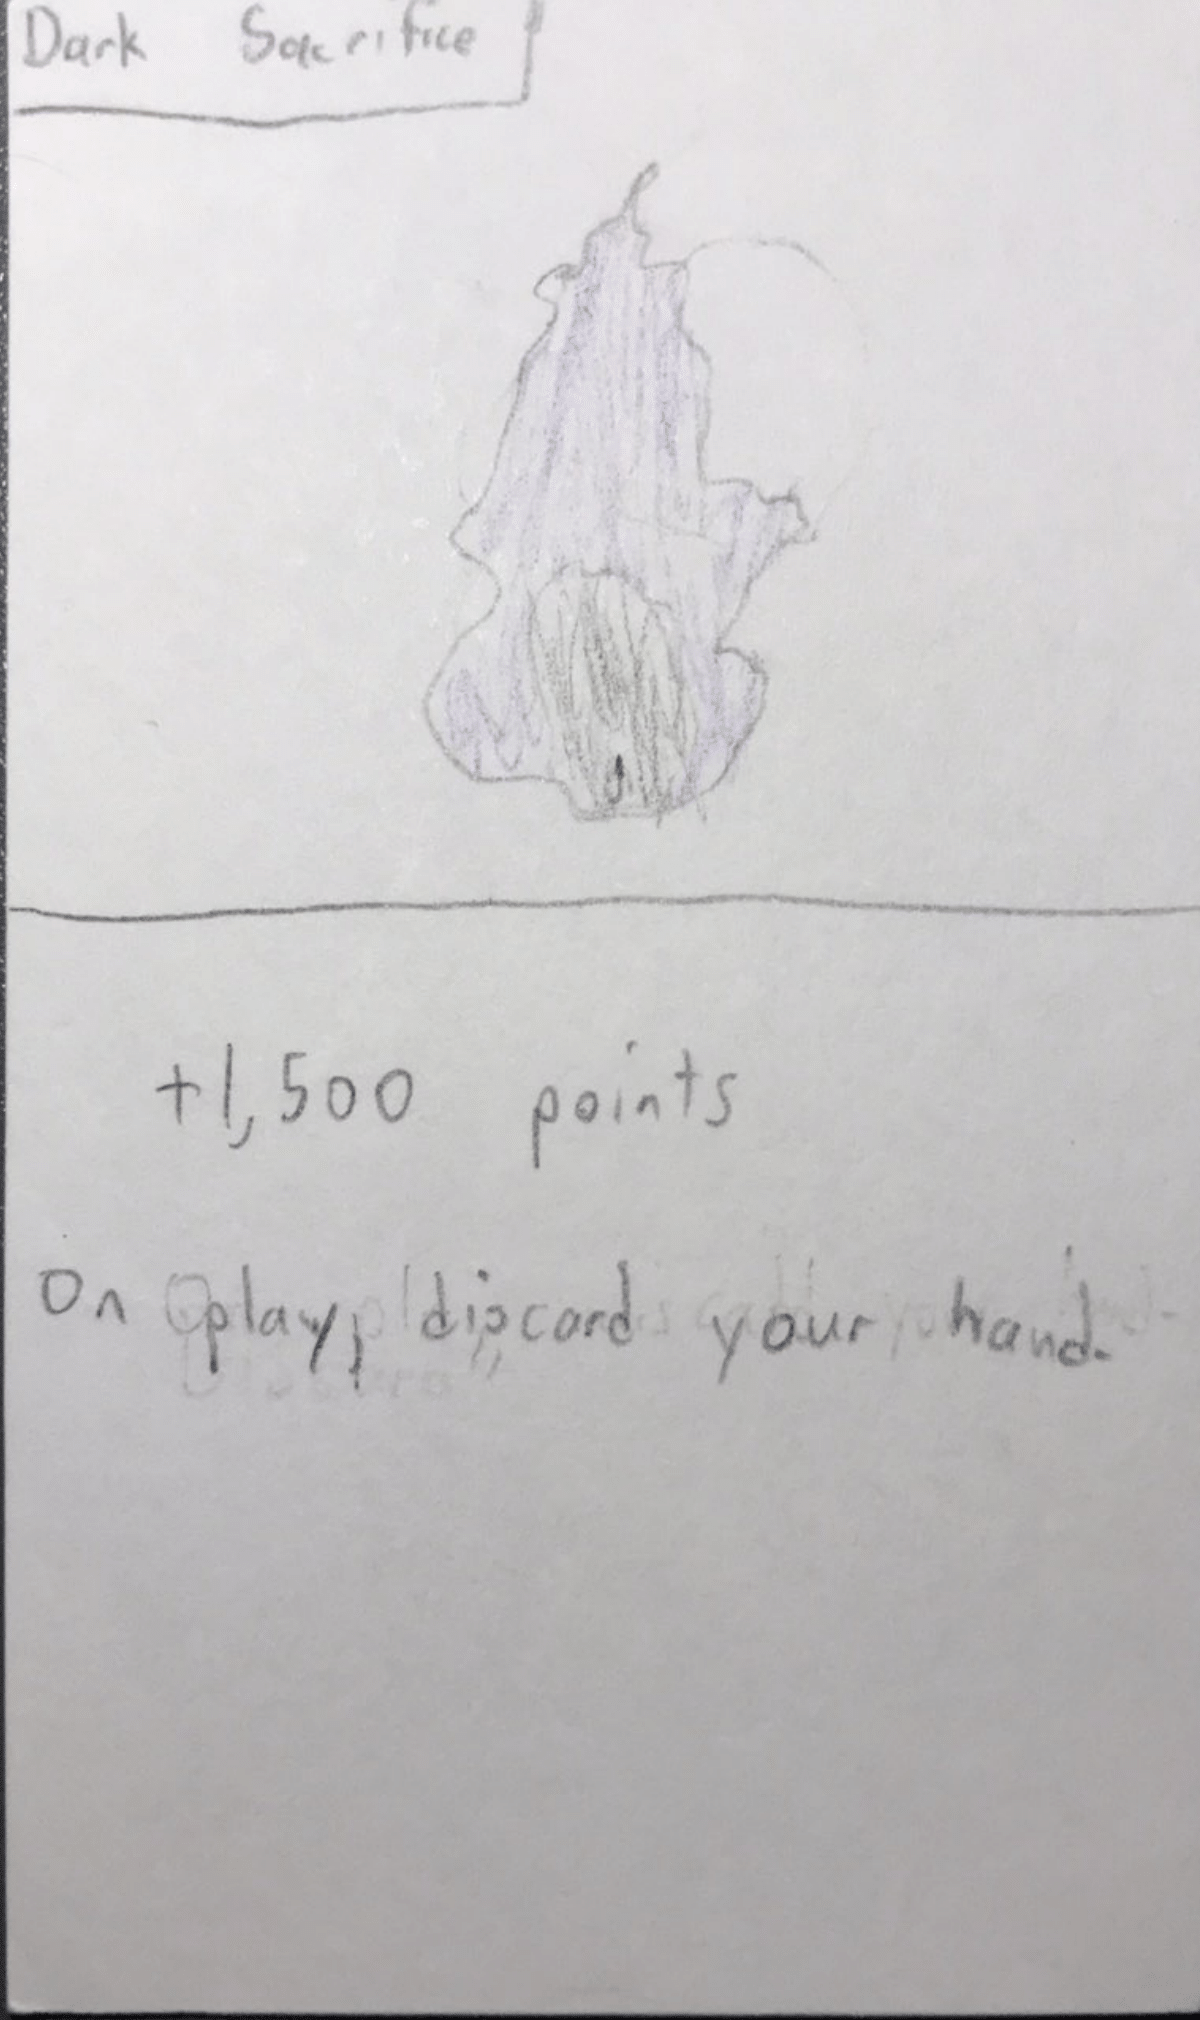 Dark Sacrifice
+1,500 points
On play, discard your hand.